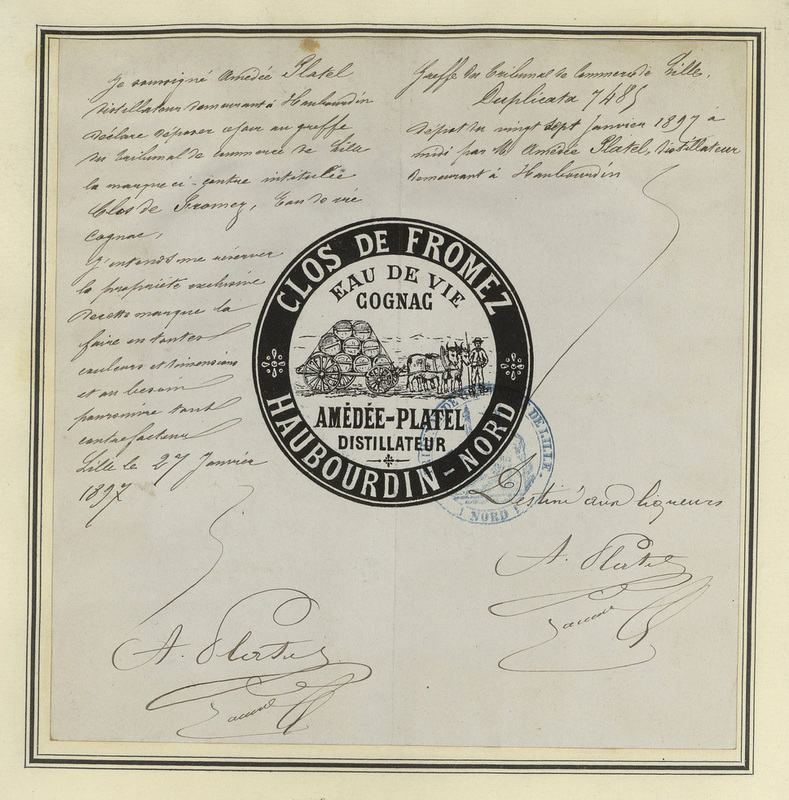 Je soussigné Amédée Platel
distillateur demeurant à Haubourdin
déclare déposer ce jour au greffe
du tribunal de commerce de Lille
la marque ci-contre intitulée
Clos de Fromez, Eau de vie
Cognac,
J'entends me réserver
la propriété exclusive
de cette marque la
faire en toutes
couleurs et dimensions
et au besoin
poursuivre tout
contrefacteur
Lille le 27 Janvier
1897
A. Platel
Greffe du tribunal de Commerce de Lille.
Duplicata 7485
dépôt du vingt sept Janvier 1897 à
midi par M. Amédée Platel, distillateur
demeurant à Haubourdin
CLOS DE FROMEZ
EAU DE VIE
COGNAC
AMÉDÉE-PLATEL
DISTILLATEUR
HAUBOURDIN-NORD
DE LILLE.
NORD
Destiné aux liqueurs
A. Platel